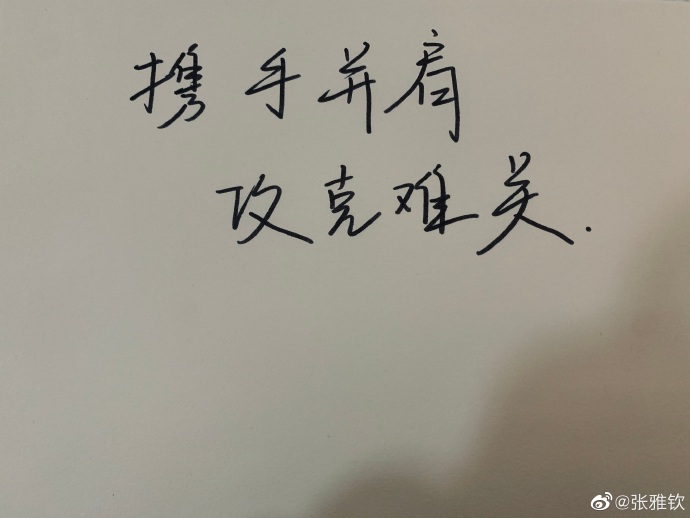 携手并肩
攻克难关.
@张雅钦